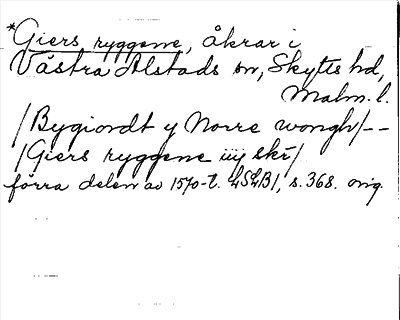 *Giers ryggene, åkrar i
Västra Alstads sn, Skytts hd,
Malm. l.
/Bygiordt y Norre wongh/--
/Giers ryggene iiij skr/
förra delen av 1570-t. LSLB1, s. 368. orig.